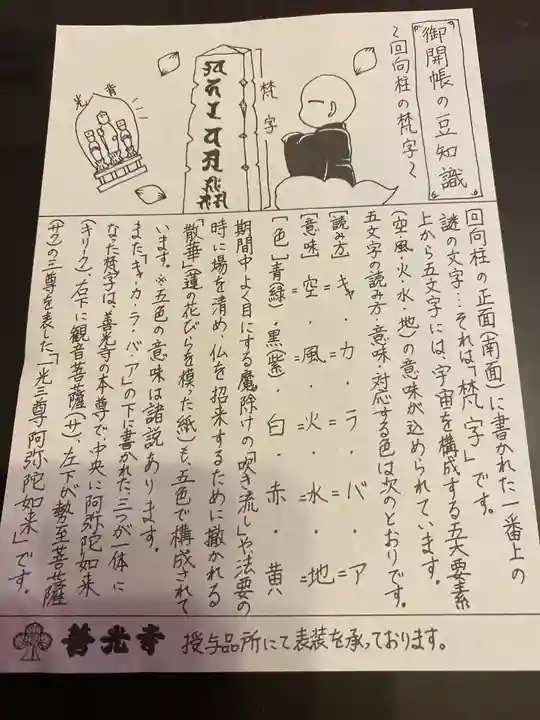 御開帳の豆知識
〜回向柱の梵字〜
梵字
光背
回向柱の正面(南面)に書かれた一番上の
謎の文字…それは「梵字」です。
上から五文字には、宇宙を構成する五大要素
(空・風・火・水・地)の意味が込められています。
五文字の読み方・意味・対応する色は次のとおりです。
[読み方] キャ・カ・ラ・バ・ア
[意味] 空・風・火・水・地
[色] 青(緑)・黒(紫)・白・赤・黄
期間中よく目にする魔除けの「吹き流し」や法要の
時に場を清め、仏を招来するために撒かれる
「散華」(蓮の花びらを模った紙)も、五色で構成されて
います。※五色の意味は諸説あります。
また「キャ・カ・ラ・バ・ア」の下に書かれた三つが一体に
なった梵字は、善光寺の本尊で、中央に阿弥陀如来
(キリーク)、右下に観音菩薩(サ)、左下が勢至菩薩
(サク)の三尊を表した「一光三尊阿弥陀如来」です。
善光寺 授与品所にて表装を承っております。